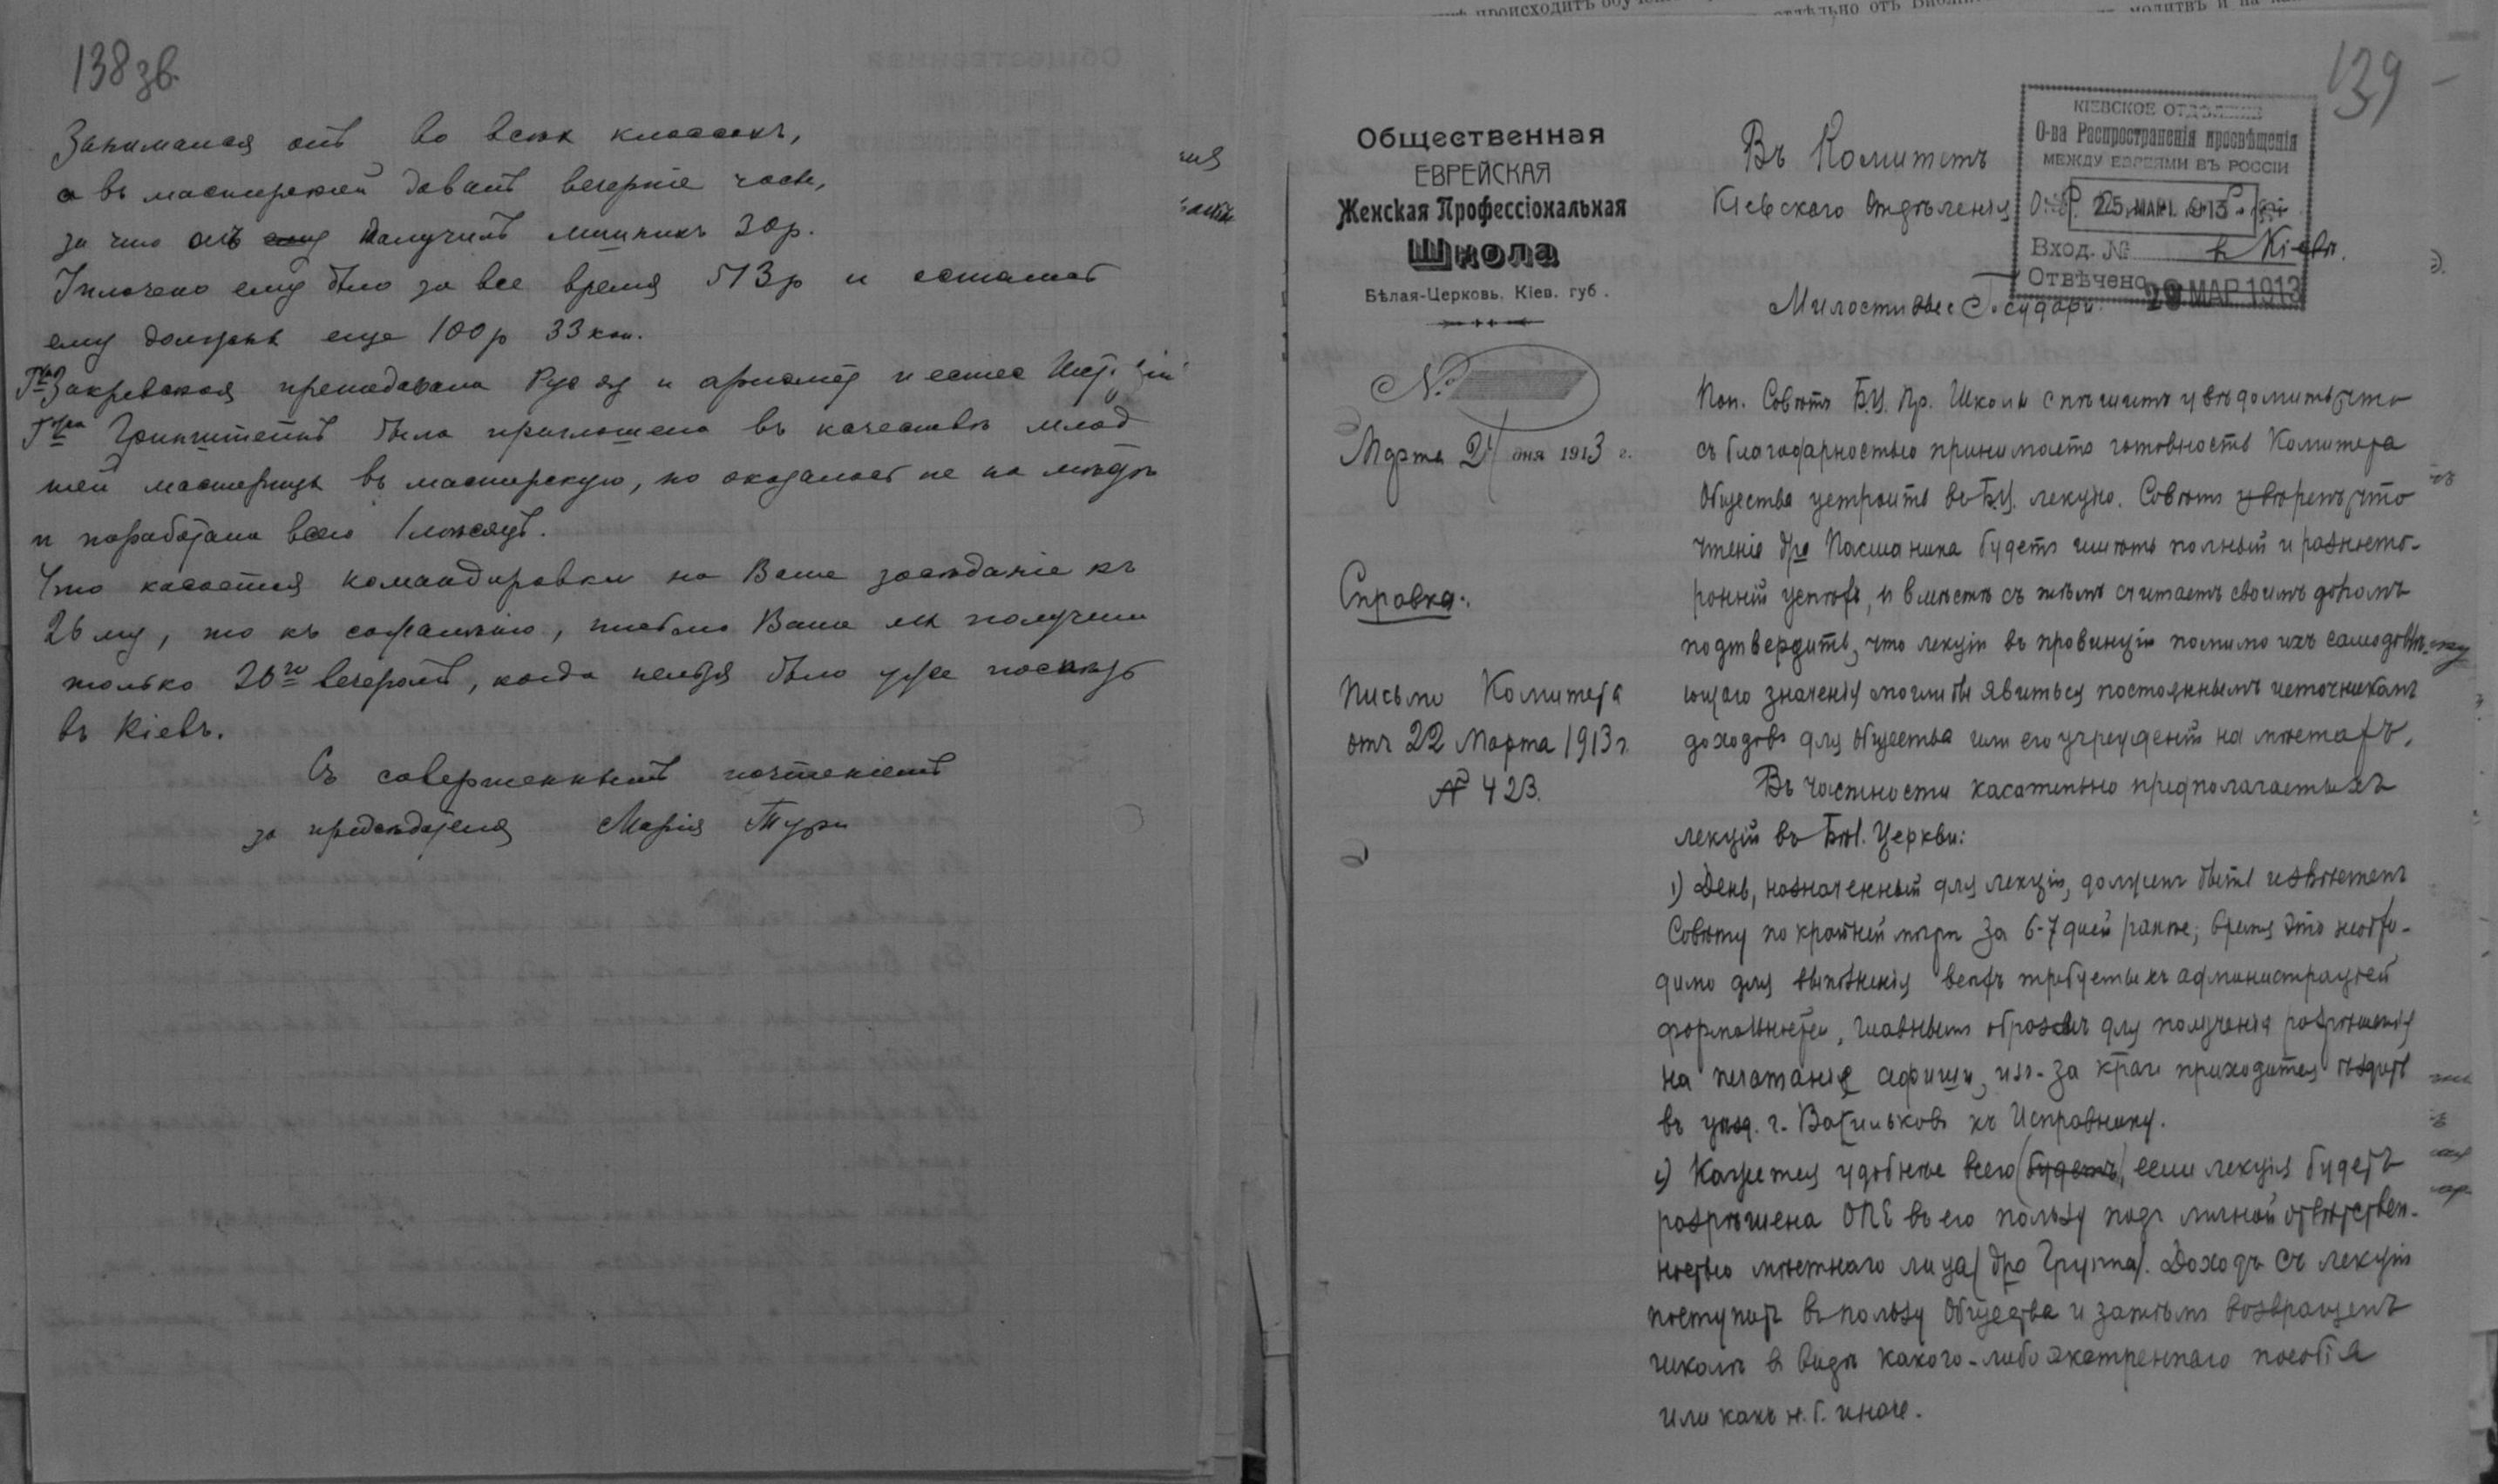 138 зв.
Занимался онъ во всѣхъ классахъ,
а въ мастерской давалъ вечерніе часы,
за что онъ получилъ 30 р.
Уплочено ему было за все время 513 р и остались
ему должны еще 100 р 33 коп.
Г-жа Закревская преподавала Рус яз и арифмет и естес
Г-жа Гринштейнъ была приглашена въ качествѣ млад
шей мастерицы въ мастерскую, но оказалась не на мѣстѣ
и поработала всего 1 мѣсяцъ.
Что касается командировки на Ваше засѣданіе къ
26 му, то къ сожалѣнію, письмо Ваше мы получили
только 26го вечеромъ, когда нельзя было уже поспѣть
въ Кіевъ.
Съ совершеннымъ почтеніемъ
за предсѣдателя Марія Турн
139
Общественная
ЕВРЕЙСКАЯ
Женская Профессіональная
Школа
Бѣлая-Церковь, Кіев. губ.
№
Марта 24 дня 1913 г.
Справка:
Письмо Комитета
отъ 22 Марта 1913 г.
№ 423.
КІЕВСКОЕ ОТДѢЛЕНІЕ
О-ва Распространенія просвѣщенія
МЕЖДУ ЕВРЕЯМИ ВЪ РОССІИ
25 МАР. 1913
Вход. №
Отвѣчено 29 МАР 1913
Въ Комитетъ
Кіевскаго Отдѣленія
в Кіевѣ.
Милостивые Государи.
Поп. Совѣтъ Б.Ц. Пр. Школы спѣшитъ увѣдомить, что
съ благодарностью принимаетъ готовность Комитета
Общества устроить въ Б.Ц. лекцію. Совѣтъ увѣренъ, что
чтеніе д-ра Пасманика будетъ имѣть полный и разносто-
ронній успѣхъ, и вмѣстѣ съ тѣмъ считаетъ своимъ долгомъ
подтвердить, что лекціи въ провинціи помимо ихъ самодовлѣ-
ющаго значенія могли бы явиться постояннымъ источникомъ
доходовъ для Общества или его учрежденій на мѣстахъ.
Въ частности касательно предполагаемыхъ
лекцій въ Бѣл. Церкви:
1) День, назначенный для лекціи, долженъ быть извѣстенъ
Совѣту по крайней мѣрѣ за 6-7 дней ранѣе; время это необхо-
димо для выполненія всѣхъ требуемыхъ администраціей
формальностей, главнымъ образомъ для полученія разрѣшенія
на печатаніе афиши, из-за краи приходится ѣздить
въ уѣзд. г. Васильковъ къ Исправнику.
2) Кажется удобнѣе всего (будетъ), если лекція будетъ
разрѣшена ОПЕ въ его пользу подъ личной отвѣтствен-
ностью мѣстнаго лица (д-ра Группа). Доходъ съ лекціи
поступитъ въ пользу Общества и затѣмъ возвращенъ
школѣ в видѣ какого-либо экстреннаго пособія
или какъ н.б. иначе.